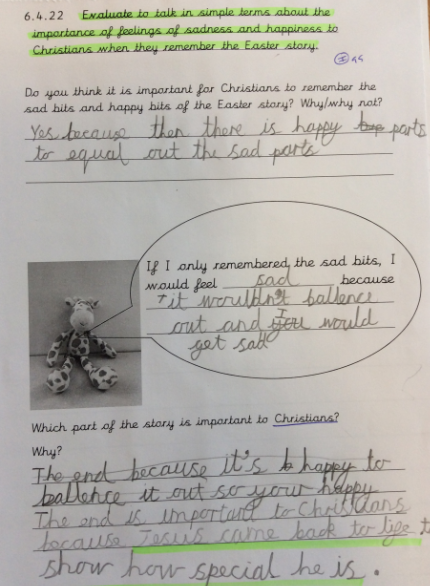 6.4.22 Evaluate to talk in simple terms about the
importance of feelings of sadness and happiness to
Christians when they remember the Easter story.
Do you think it is important for Christians to remember the
sad bits and happy bits of the Easter story? Why/why not?
Yes because then there is happy parts
to equal out the sad parts
If I only remembered the sad bits, I
would feel sad because
it wouldn't ballence
out and I would
get sad
Which part of the story is important to Christians?
Why?
The end because it's happy to
ballence it out so your happy
The end is important to Christians
because Jesus came back to life t
show how special he is.